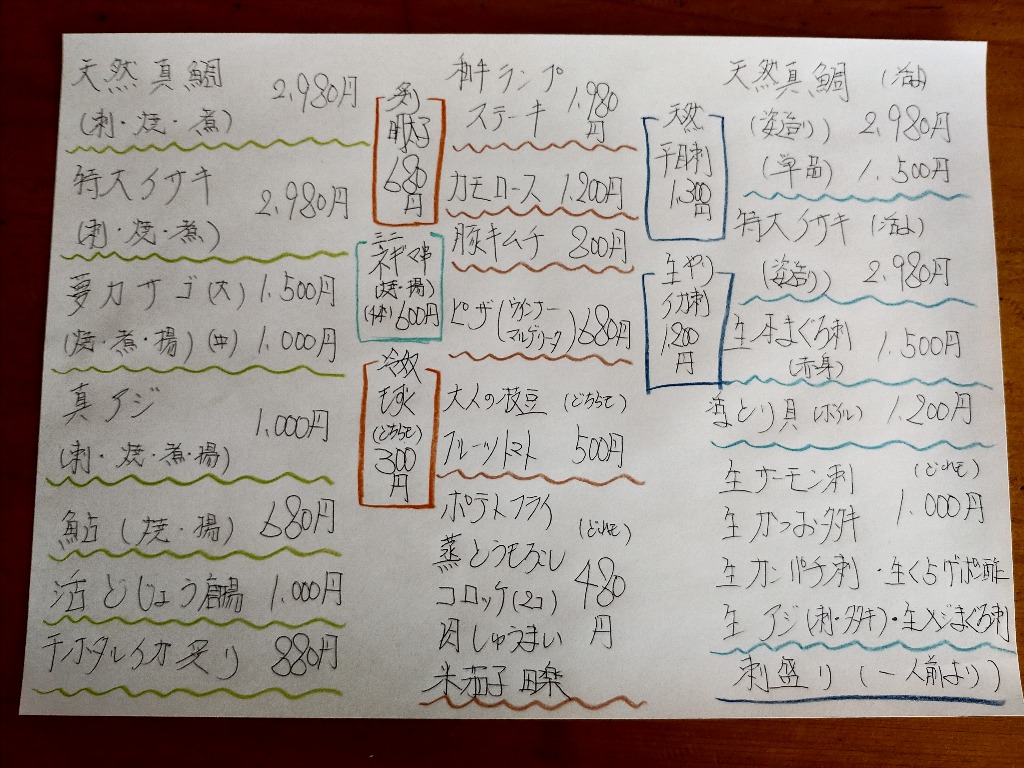 天然真鯛
(刺・焼・煮) 2,980円
特大イサキ
(刺・焼・煮) 2,980円
夢カサゴ(大) 1,500円
(焼・煮・揚)(中) 1,000円
真アジ
(刺・焼・煮・揚) 1,000円
鮎(焼・揚) 680円
活どじょう唐揚 1,000円
干ホタルイカ炙り 880円
炙
明太子
680
円
ミニ
ネギマ串
(焼・揚)
600円
冷奴
(どちらも)
300
円
和牛ランプ
ステーキ 1,980
円
カモロース 1,200円
豚キムチ 800円
ピザ(ウインナー
マルゲリータ) 680円
大人の枝豆 (どちらも)
フルーツトマト 500円
ポテトフライ
(どれも)
蒸とうもろこし
480
コロッケ(2コ)
円
肉しゅうまい
米茄子田楽
天然
平目刺
1,300
円
生やり
イカ刺
1,200
円
天然真鯛 (活〆)
(姿造り) 2,980円
(単品) 1,500円
特大イサキ (活〆)
(姿造り) 2,980円
生本まぐろ刺
(赤身) 1,500円
とり貝(ボイル) 1,200円
生サーモン刺 (どれも)
生かつお 1,000円
生カンパチ刺・生くらげポン酢
生アジ(刺・タタキ)・生メジまぐろ刺
刺盛り(一人前より)